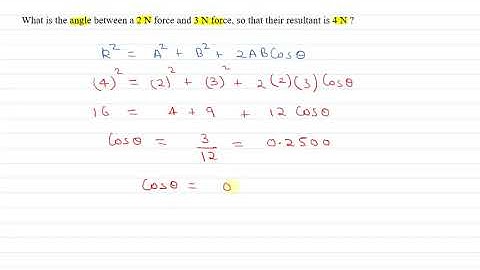 What is the angle between a 2 N force and 3 N force, so that their resultant is 4 N ?
R² = A² + B² + 2ABCosθ
(4)² = (2)² + (3)² + 2(2)(3) Cosθ
16 = 4 + 9 + 12 Cosθ
Cosθ = 3/12 = 0.2500
Cosθ = 0